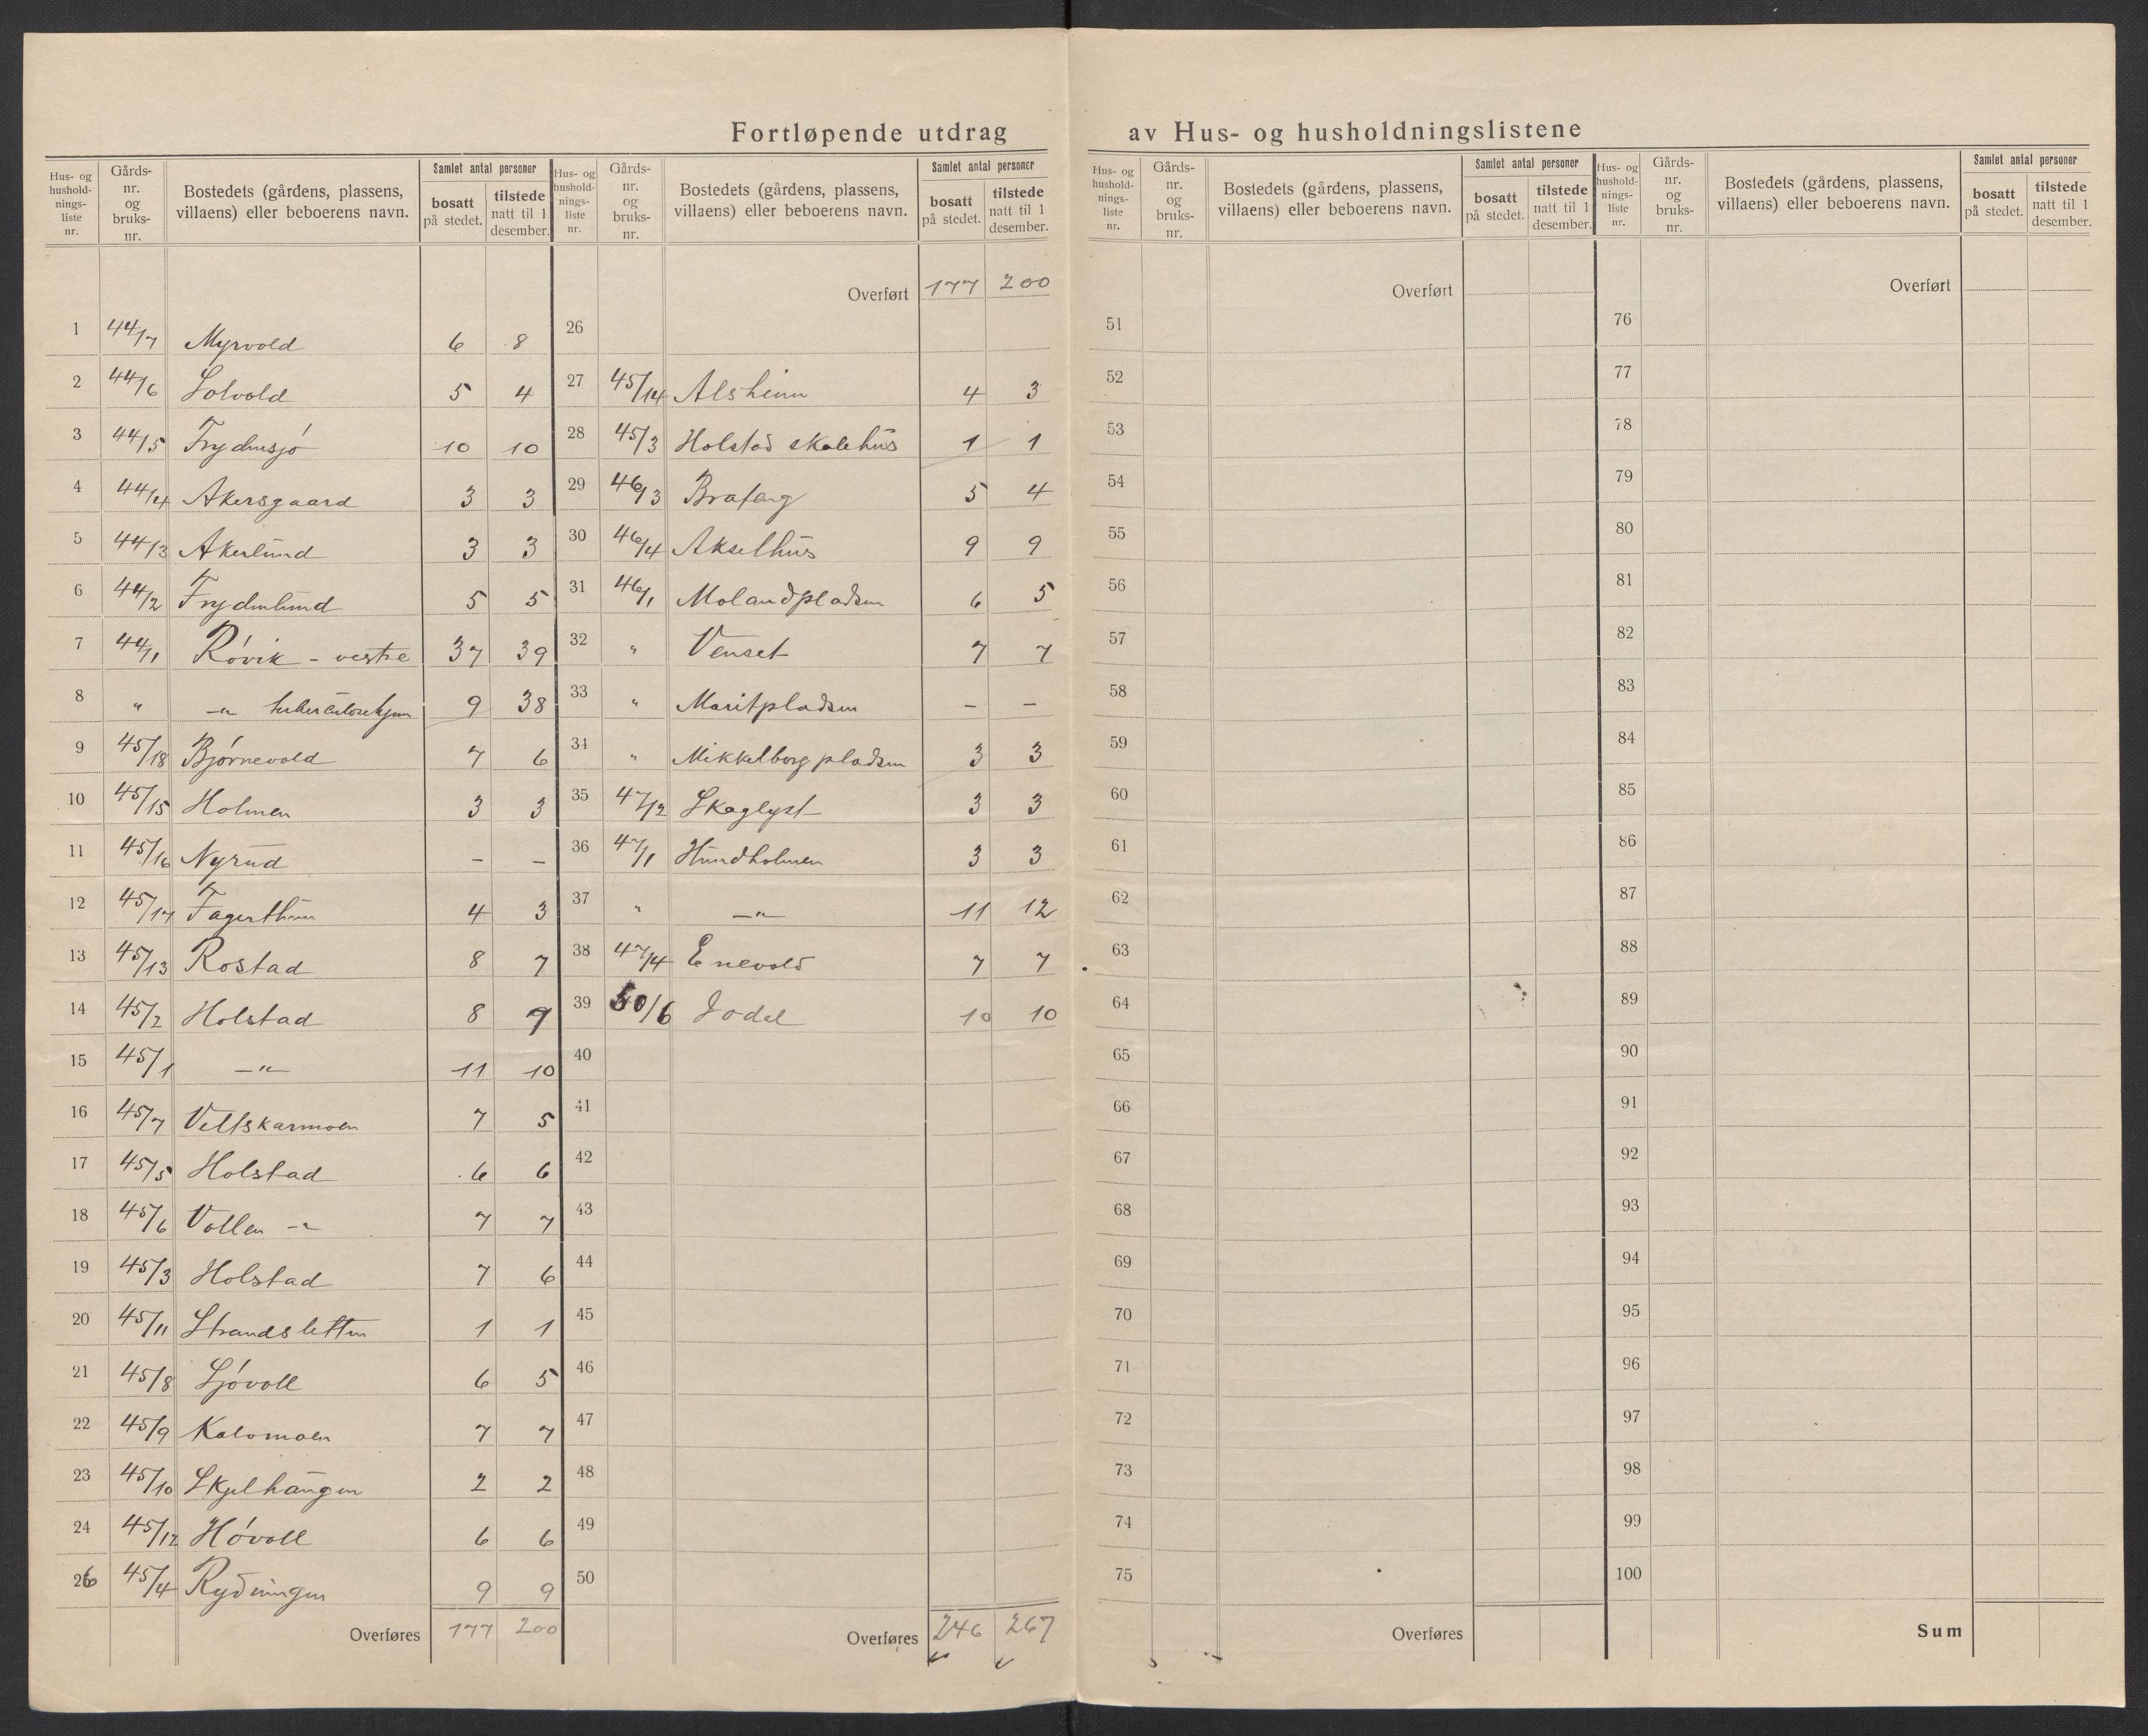 Fortløpende utdrag av Hus- og husholdningslistene
Hus- og hushold- nings- liste nr. | Gårds- nr. og bruks- nr. | Bostedets (gårdens, plassens, villaens) eller beboerens navn. | Samlet antal personer | bosatt på stedet. | tilstede natt til 1 desember.
1 44/7 Myrvold 6 8
2 44/6 Solvold 5 4
3 44/5 Frydensjø 10 10
4 44/4 Akersgaard 3 3
5 44/3 Akerlund 3 3
6 44/2 Frydenlund 5 5
7 44/1 Røvik - vestre 37 39
8 " -"- tuberculosehjem 9 38
9 45/18 Bjørnevold 7 6
10 45/15 Holmen 3 3
11 45/16 Nyrud – –
12 45/17 4 3
13 45/13 Rostad 8 7
14 45/2 Holstad 8 9
15 45/1 -"- 11 10
16 45/7 Vetskarmoen 7 5
17 45/5 Holstad 6 6
18 45/6 Vollen -"- 7 7
19 45/3 Holstad 7 6
20 45/11 Strandsletten 1 1
21 45/8 Sjøvoll 6 5
22 45/9 Kalvmoen 7 7
23 45/10 Skjelhaugen 2 2
24 45/12 Høvoll 6 6
26 45/4 Rydningen 9 9
Overføres 177 200
Hus- og hushold- nings- liste nr. | Gårds- nr. og bruks- nr. | Bostedets (gårdens, plassens, villaens) eller beboerens navn. | Samlet antal personer | bosatt på stedet. | tilstede natt til 1 desember.
Overført 177 200
26
27 45/14 Alsheim 4 3
28 45/3 Holstad skolehus 1 1
29 46/3 Brafang 5 4
30 46/4 Akselhus 9 9
31 46/1 Molandpladsen 6 5
32 " Venset 7 7
33 " Maritpladsen – –
34 " Mikkelborg pladsen 3 3
35 47/2 Skoglyst 3 3
36 47/1 Hundholmen 3 3
37 " -"- 11 12
38 47/4 Enevold 7 7
39 50/6 Jodal 10 10
40
41
42
43
44
45
46
47
48
49
50
Overføres 246 267
Hus- og hushold- nings- liste nr. | Gårds- nr. og bruks- nr. | Bostedets (gårdens, plassens, villaens) eller beboerens navn. | Samlet antal personer | bosatt på stedet. | tilstede natt til 1 desember.
Overført
51
52
53
54
55
56
57
58
59
60
61
62
63
64
65
66
67
68
69
70
71
72
73
74
75
Overføres
Hus- og hushold- nings- liste nr. | Gårds- nr. og bruks- nr. | Bostedets (gårdens, plassens, villaens) eller beboerens navn. | Samlet antal personer | bosatt på stedet. | tilstede natt til 1 desember.
Overført
76
77
78
79
80
81
82
83
84
85
86
87
88
89
90
91
92
93
94
95
96
97
98
99
100
Sum